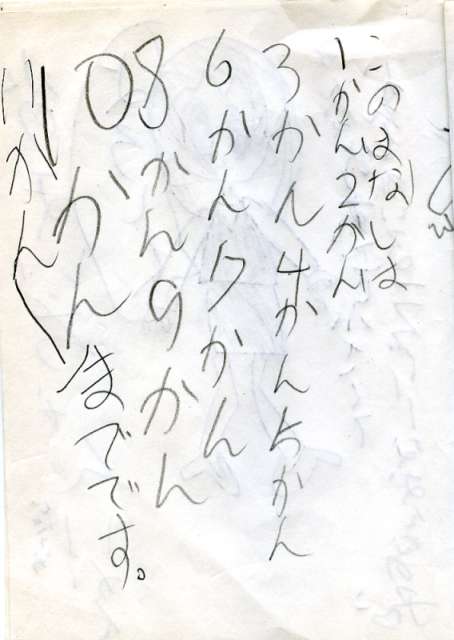 このはなしは
1かん2かん
3かん4かん5かん
6かん7かん
8かん9かん
10かんまでです。
11かん